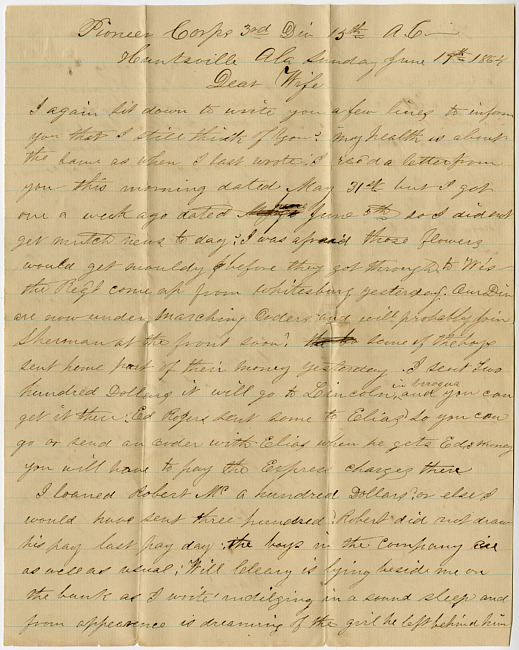 Pioneer Corps 3rd Div 15th A.C.
Huntsville Ala Sunday June 19th 1864
Dear Wife
I again sit down to write you a few lines to inform
you that I still think of you. my health is about
the same as when I last wrote. I rec'd a letter from
you this morning dated May 31st but I got
one a week ago dated June 5th so I did not
get mutch news to day. I was afraid those flowers
would get mouldy before they got through to Wis
the Regt come up from Whitesburg yesterday. Our Div
are now under Marching Orders and will probably join
Sherman at the front soon. some of the boys
sent home part of their money yesterday I sent Two
hundred Dollars it will go to Lincoln in viroqua and you can
get it then. Ed Rogers sent some to Elias so you can
go or send an order with Elias when he gets Eds money
you will have to pay the Express charges there
I loaned Robert Mc a hundred Dollars or else I
would have sent three hundred. Robert did not draw
his pay last pay day. the boys in the Company are
as well as usual. Will Cleary is lying beside me on
the bank as I write indilging in a sound sleep and
from appearence is dreaming of the girl he left behind him